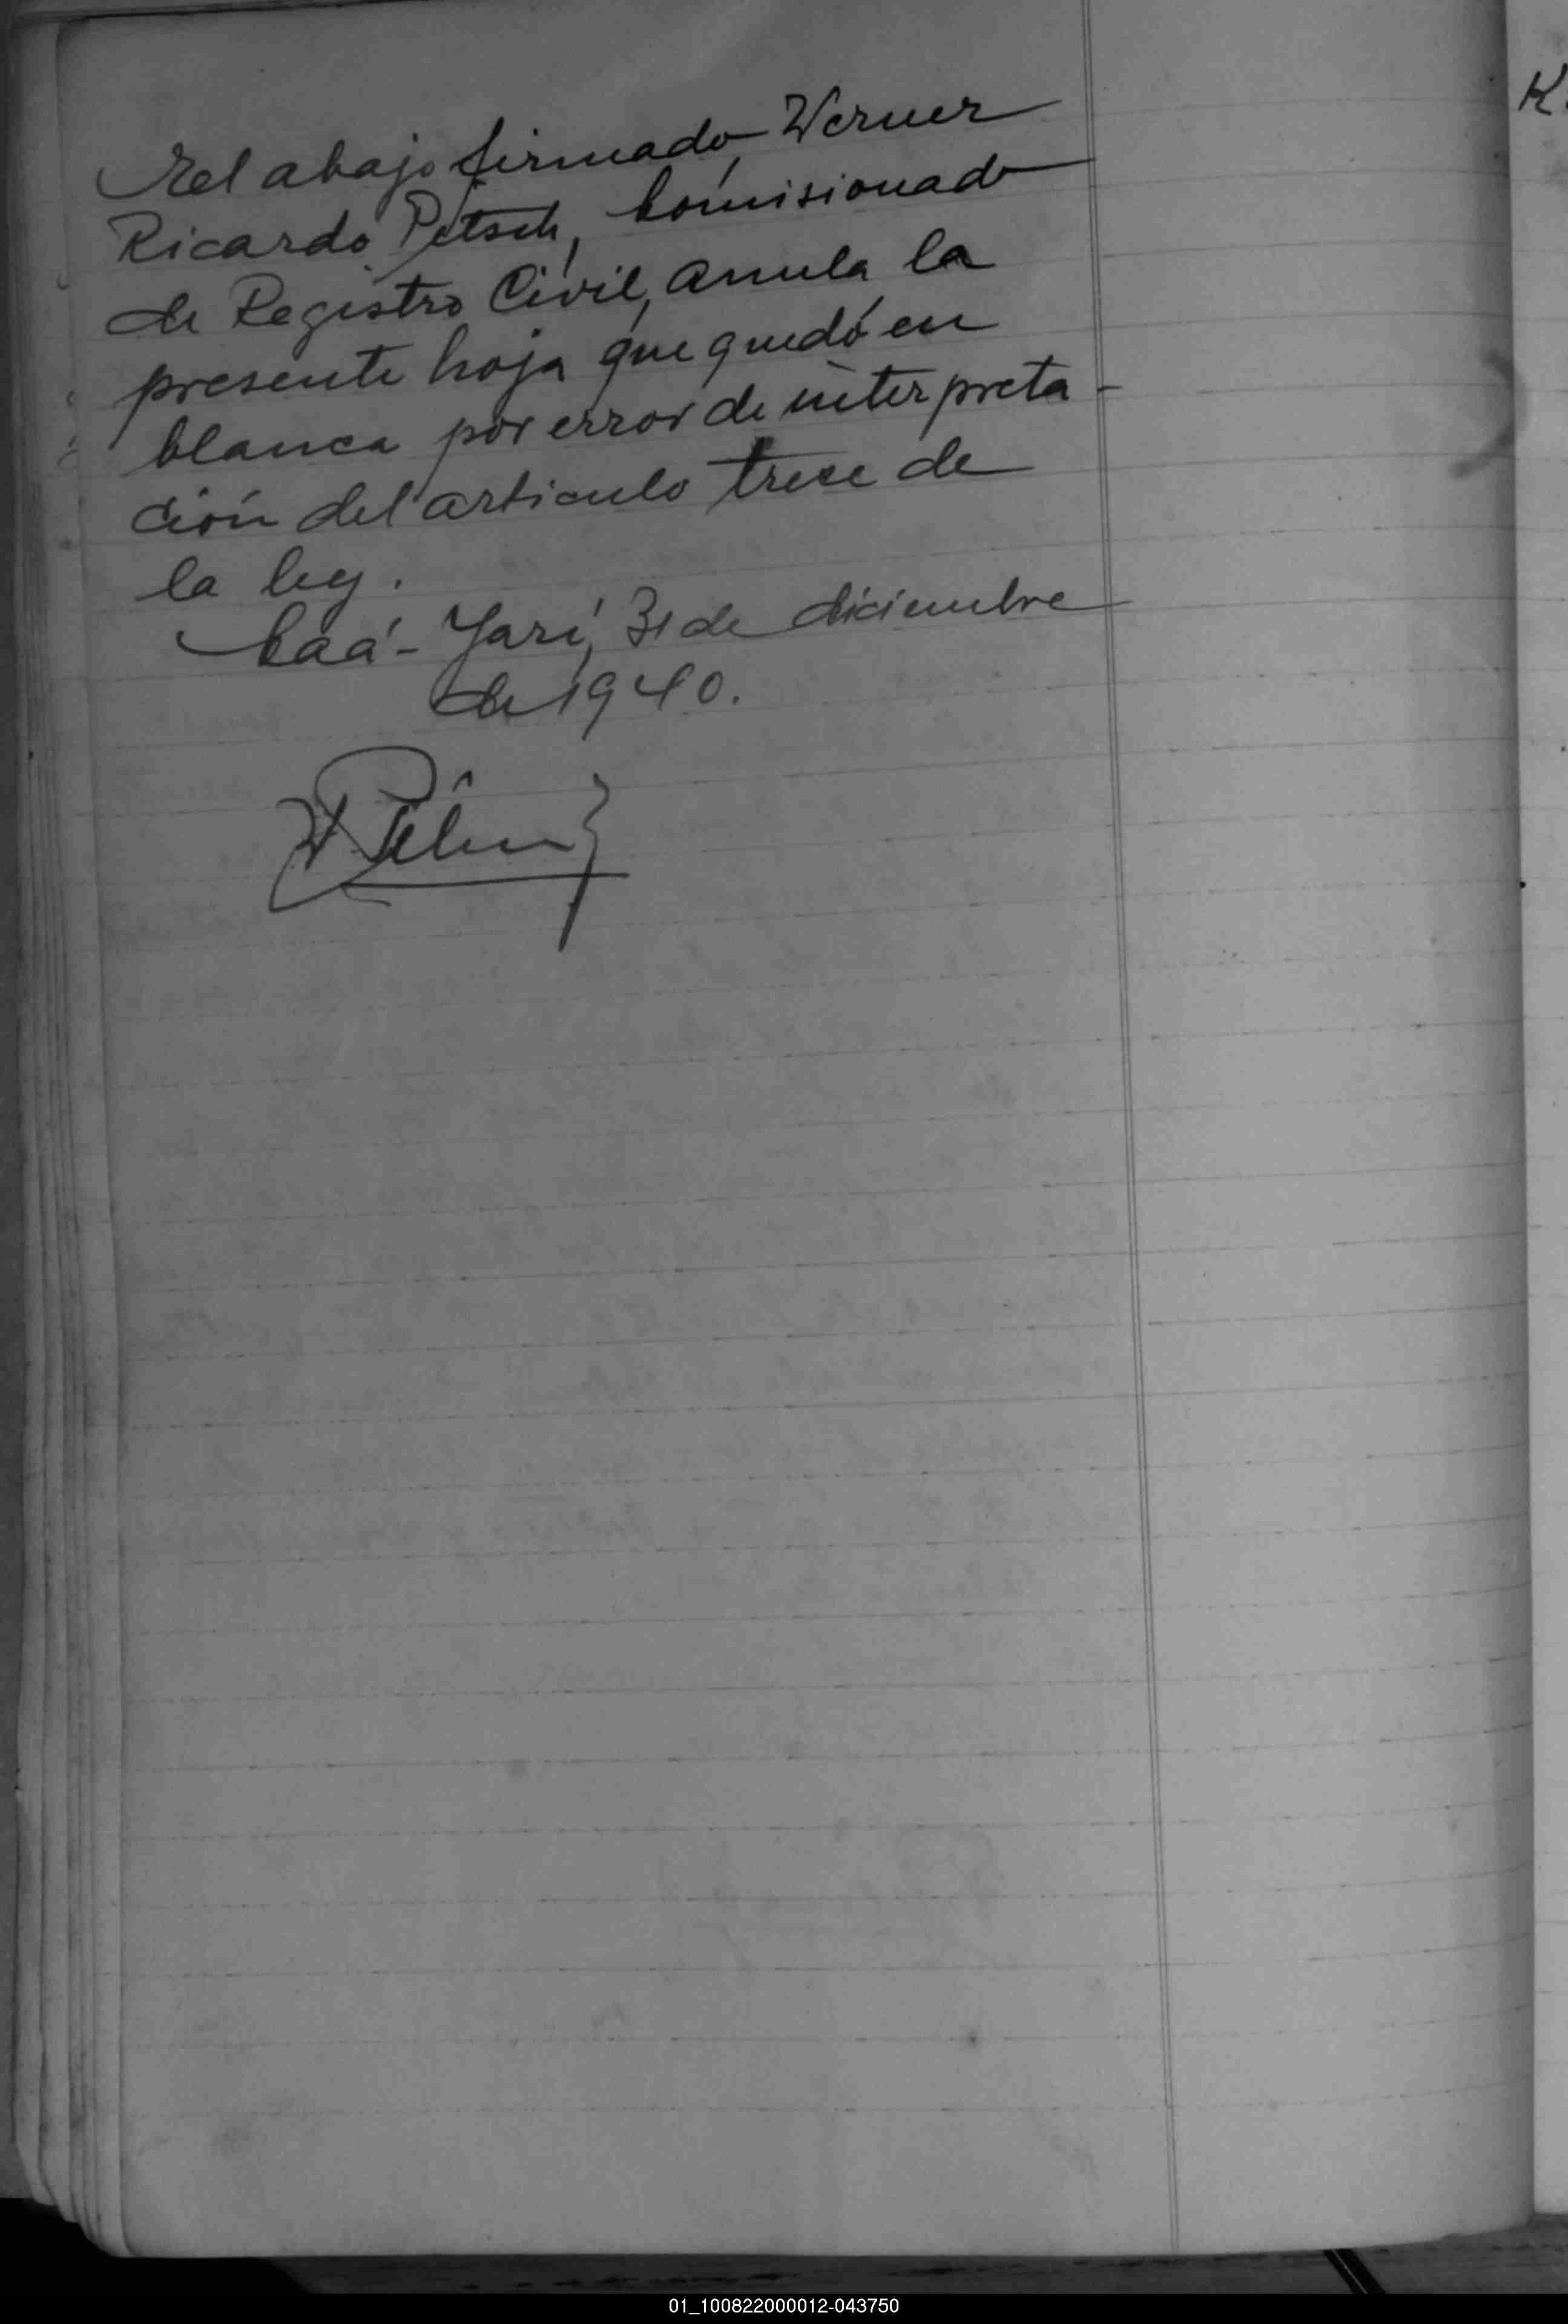 El abajo firmado, Werner
Ricardo Petsch, Comisionado
de Registro Civil, anula la
presente hoja que quedó en
blanca por error de interpreta-
ción del articulo trece de
la ley.
Caá-Yarí, 31 de diciembre
de 1940.
K
01_100822000012-043750